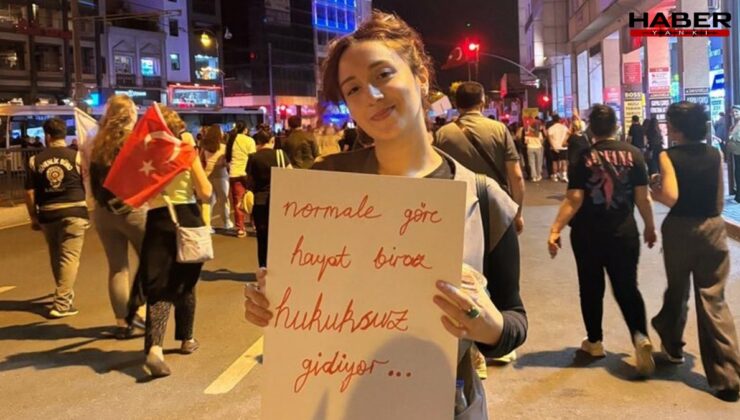 HABER
YANKI
normale göre
hayat biraz
hukuksuz
gidiyor...
BOSS